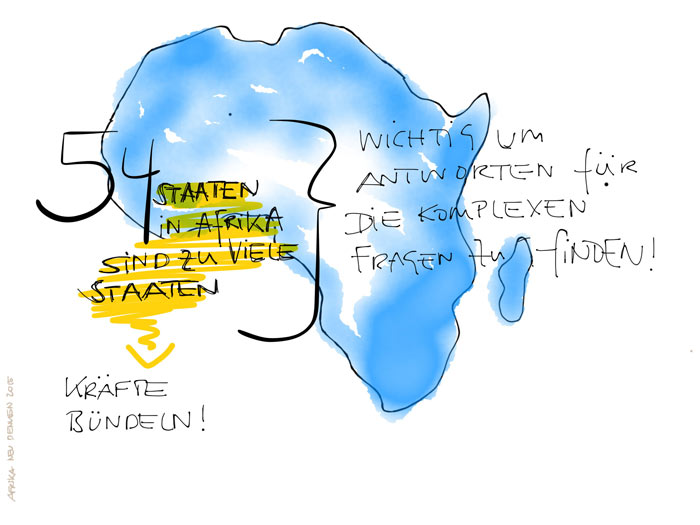 54 STAATEN
IN AFRIKA
SIND ZU VIELE
STAATEN
WICHTIG UM
ANTWORTEN FÜR
DIE KOMPLEXEN
FRAGEN ZU FINDEN!
KRÄFTE
BÜNDELN!
AFRIKA NEU DENKEN 2015